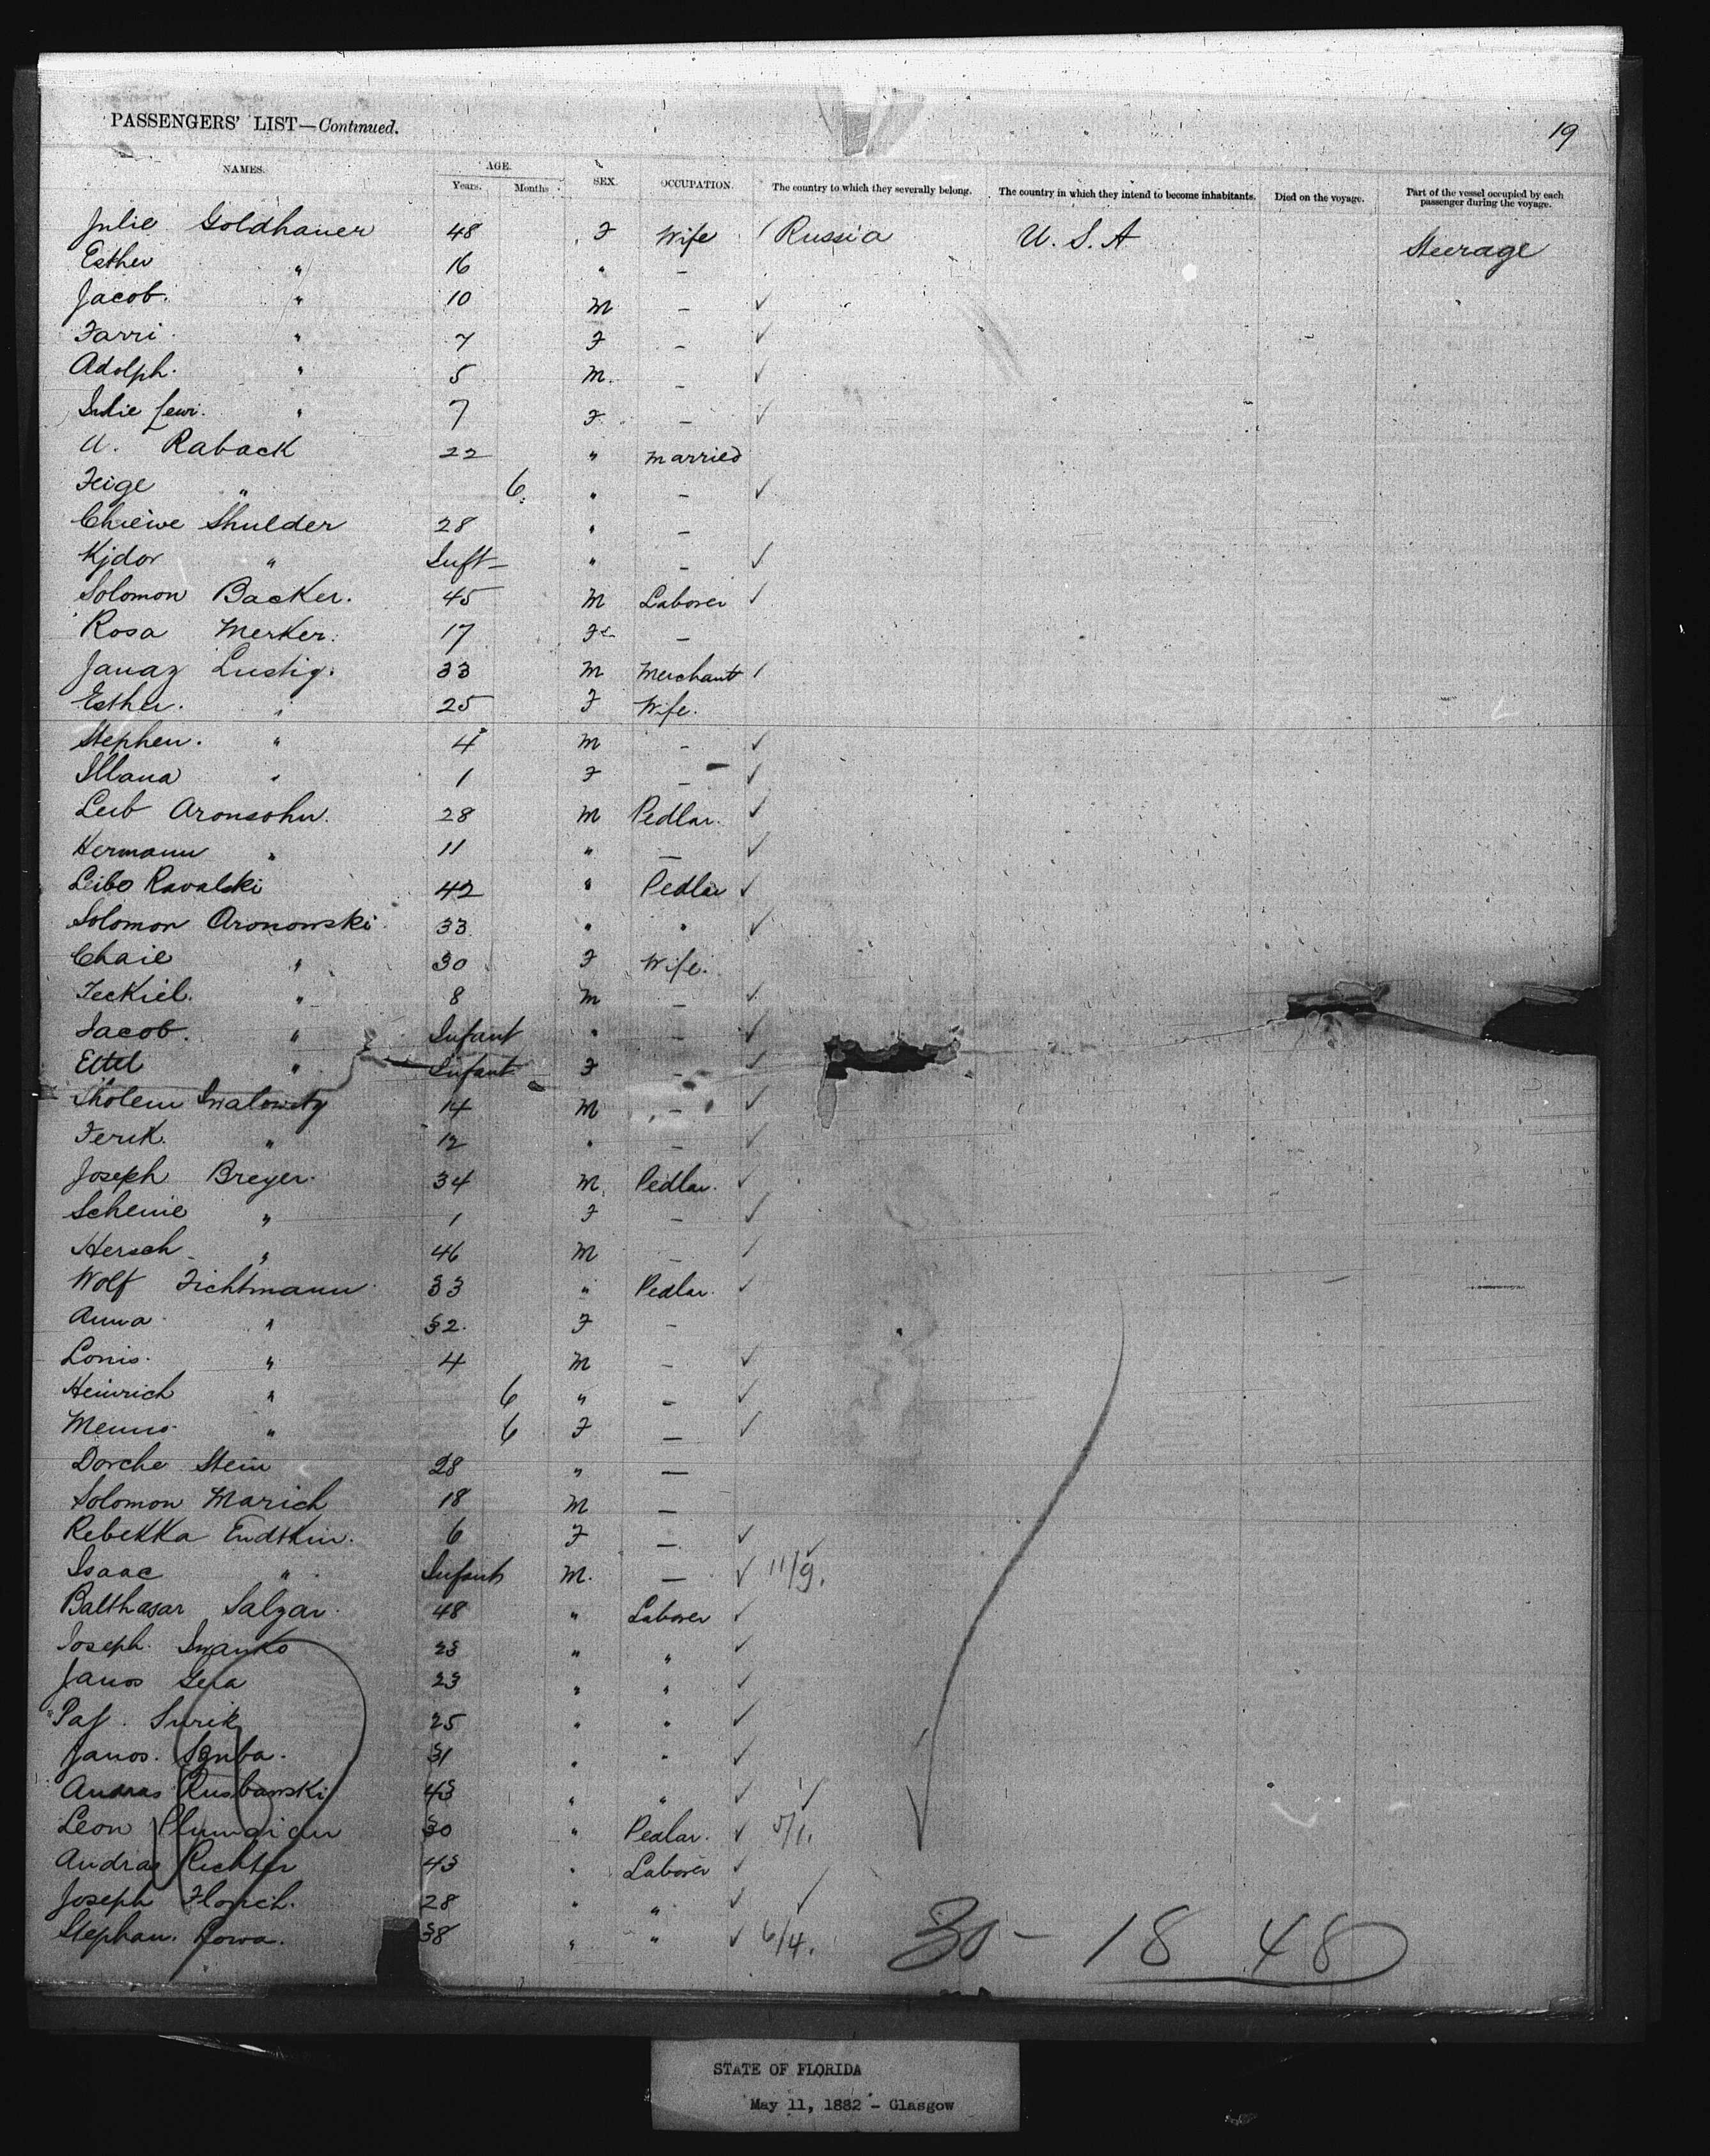 PASSENGERS' LIST—Continued.
19
NAMES. AGE. Years. Months SEX. OCCUPATION. The country to which they severally belong. The country in which they intend to become inhabitants. Died on the voyage. Part of the vessel occupied by each passenger during the voyage.
Julie Goldhauer 48 F Wife Russia U. S. A Steerage
Esther " 16 " –
Jacob. " 10 M – ✓
Farri. " 7 F – ✓
Adolph. " 5 M. – ✓
" 7 F – ✓
U. Raback 22 " Married
Feige " 6 " – ✓
Chiewe Shulder 28 " –
Kjdor " Inft – " – ✓
Solomon Backer. 45 M Laborer ✓
Rosa Merker. 17 Fe –
Janaz Lustig. 33 M Merchant
Esther. " 25 F Wife.
Stephen. " 4 M – ✓
Illana " 1 F – ✓
Leib Aronsohn. 28 M Pedlar. ✓
Hermann " 11 " – ✓
Leibo Ravalski 42 " Pedlar ✓
Solomon Aronowski 33 " " ✓
Chaie " 30 F Wife.
Jeckiel. " 8 M – ✓
Jacob. " Infant " – ✓
Ettel " Infant F – ✓
Sholem 14 M – ✓
Ferik. " 12 " – ✓
Joseph Breyer. 34 M Pedlar. ✓
Scheine " 1 F – ✓
Hersch " 46 M – ✓
Wolf Fichtmann 33 " Pedlar. ✓
Anna " 32. F –
Louis. " 4 M – ✓
Heinrich " 6 " – ✓
Menns. " 6 F – ✓
Dorche Stein 28 " –
Solomon Marich 18 M –
Rebekka Eudtkin. 6 F – ✓
Isaac " Infant M. – ✓ 11/9.
Balthasar Salzar. 48 " Laborer ✓
Joseph. Iwanko 23 " " ✓
Janos Gera 23 " " ✓
Surik 25 " " ✓
Janos. 31 " " ✓
Andras Rusbawski 43 " " ✓
Leon 30 " Pedlar. ✓ 5/1.
Andras Richter 43 " Laborer ✓
Joseph 28 " " ✓
Stephan. 38 " " ✓ 6/4.
30 – 18 48
STATE OF FLORIDA
May 11, 1882 - Glasgow